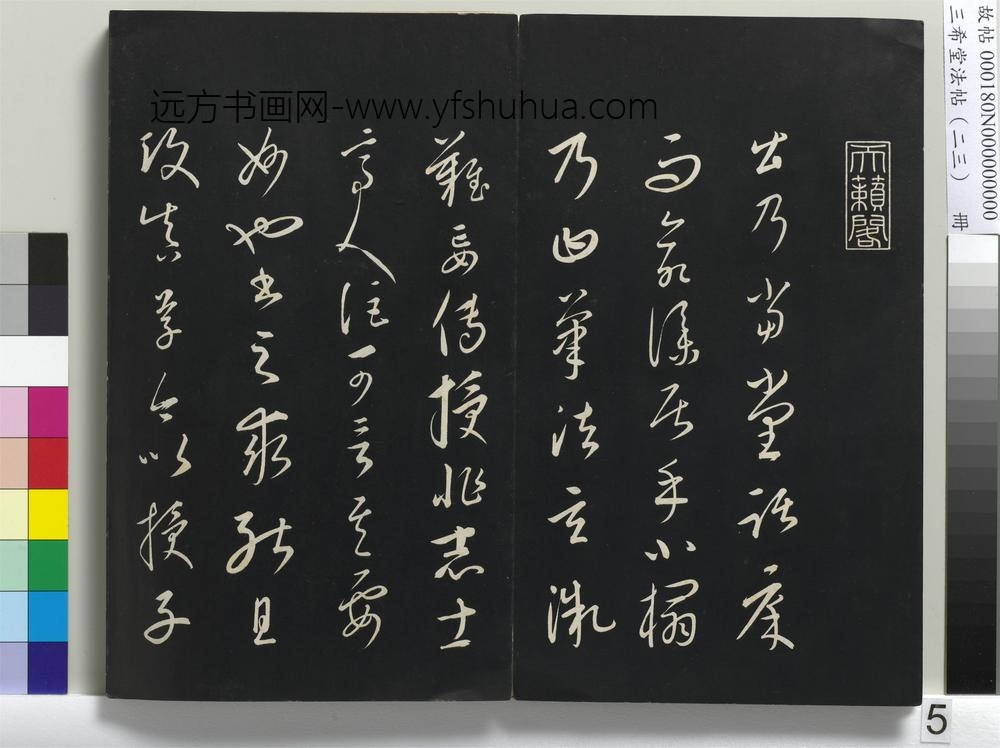 故帖 000180N000000000
三希堂法帖（二三） 冊
远方书画网-www.yfshuhua.com
天籟閣
乃當堂踞床
而命僕居乎小榻
乃曰筆法玄微
難妄傳授非志士
高人詎可言其要
妙也書之求能且
攻真草今以授子
5